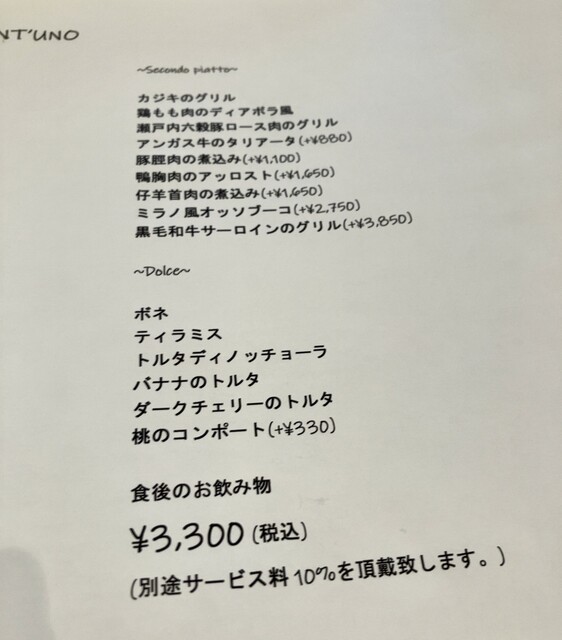 NT'UNO
~Secondo piatto~
カジキのグリル
鶏もも肉のディアボラ風
瀬戸内六穀豚ロース肉のグリル
アンガス牛のタリアータ(+¥880)
豚脛肉の煮込み(+¥1,100)
鴨胸肉のアッロスト(+¥1,650)
仔羊首肉の煮込み(+¥1,650)
ミラノ風オッソブーコ(+¥2,750)
黒毛和牛サーロインのグリル(+¥3,850)
~Dolce~
ボネ
ティラミス
トルタディノッチョーラ
バナナのトルタ
ダークチェリーのトルタ
桃のコンポート(+¥330)
食後のお飲み物
¥3,300 (税込)
(別途サービス料10%を頂戴致します。)